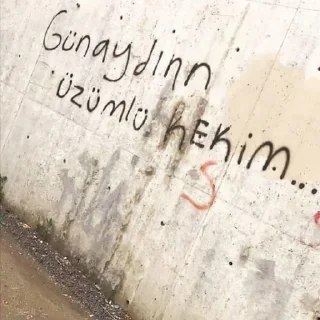 Günaydınn
üzümlü KEKİM...
S